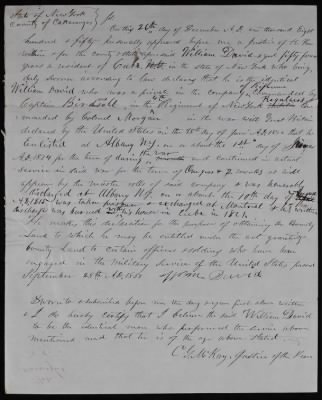 State of New York
County of Cattaraugus } ss
On this 26th day of December A.D. one thousand Eight
hundred & fifty personally appeared before me a Justice of the
within for the County & State aforesaid William David aged fifty four
years a resident of Cuba N.Y. in the State of New York who being
duly sworn according to law declares that he is the identical
William David who was a private in the company commanded by
Captain Birdsell in the Regiment of New York
Regulars
manded by Colonel Morgan in the war with Great Britain
declared by the United States on the 18th day of June A.D. 1812 that he
enlisted at Albany N.Y. on or about the 1st day of
A.D. 1814 for the term of during the war and continued in actual
service in said war for the term of & 2 months as will
appear by the muster rolls of said company & was honorably
discharged at N.Y. on or about the 10th day of
A.D. 1815 was taken prisoner & exchanged at Montreal & his written
discharge was burned with his house in Cuba in 1821.
He makes this declaration for the purpose of obtaining the Bounty
Land to which he may be entitled under the act granting
bounty Land to certain officers & soldiers who have been
engaged in the Military Service of the United States passed
September 28th AD. 1850
William David
Sworn to & subscribed before me the day & year first above written
& I do hereby certify that I believe the said William David
to be the identical man who performed the service above
mentioned and that he is of the age above stated
C. McKay, Justice of the Peace